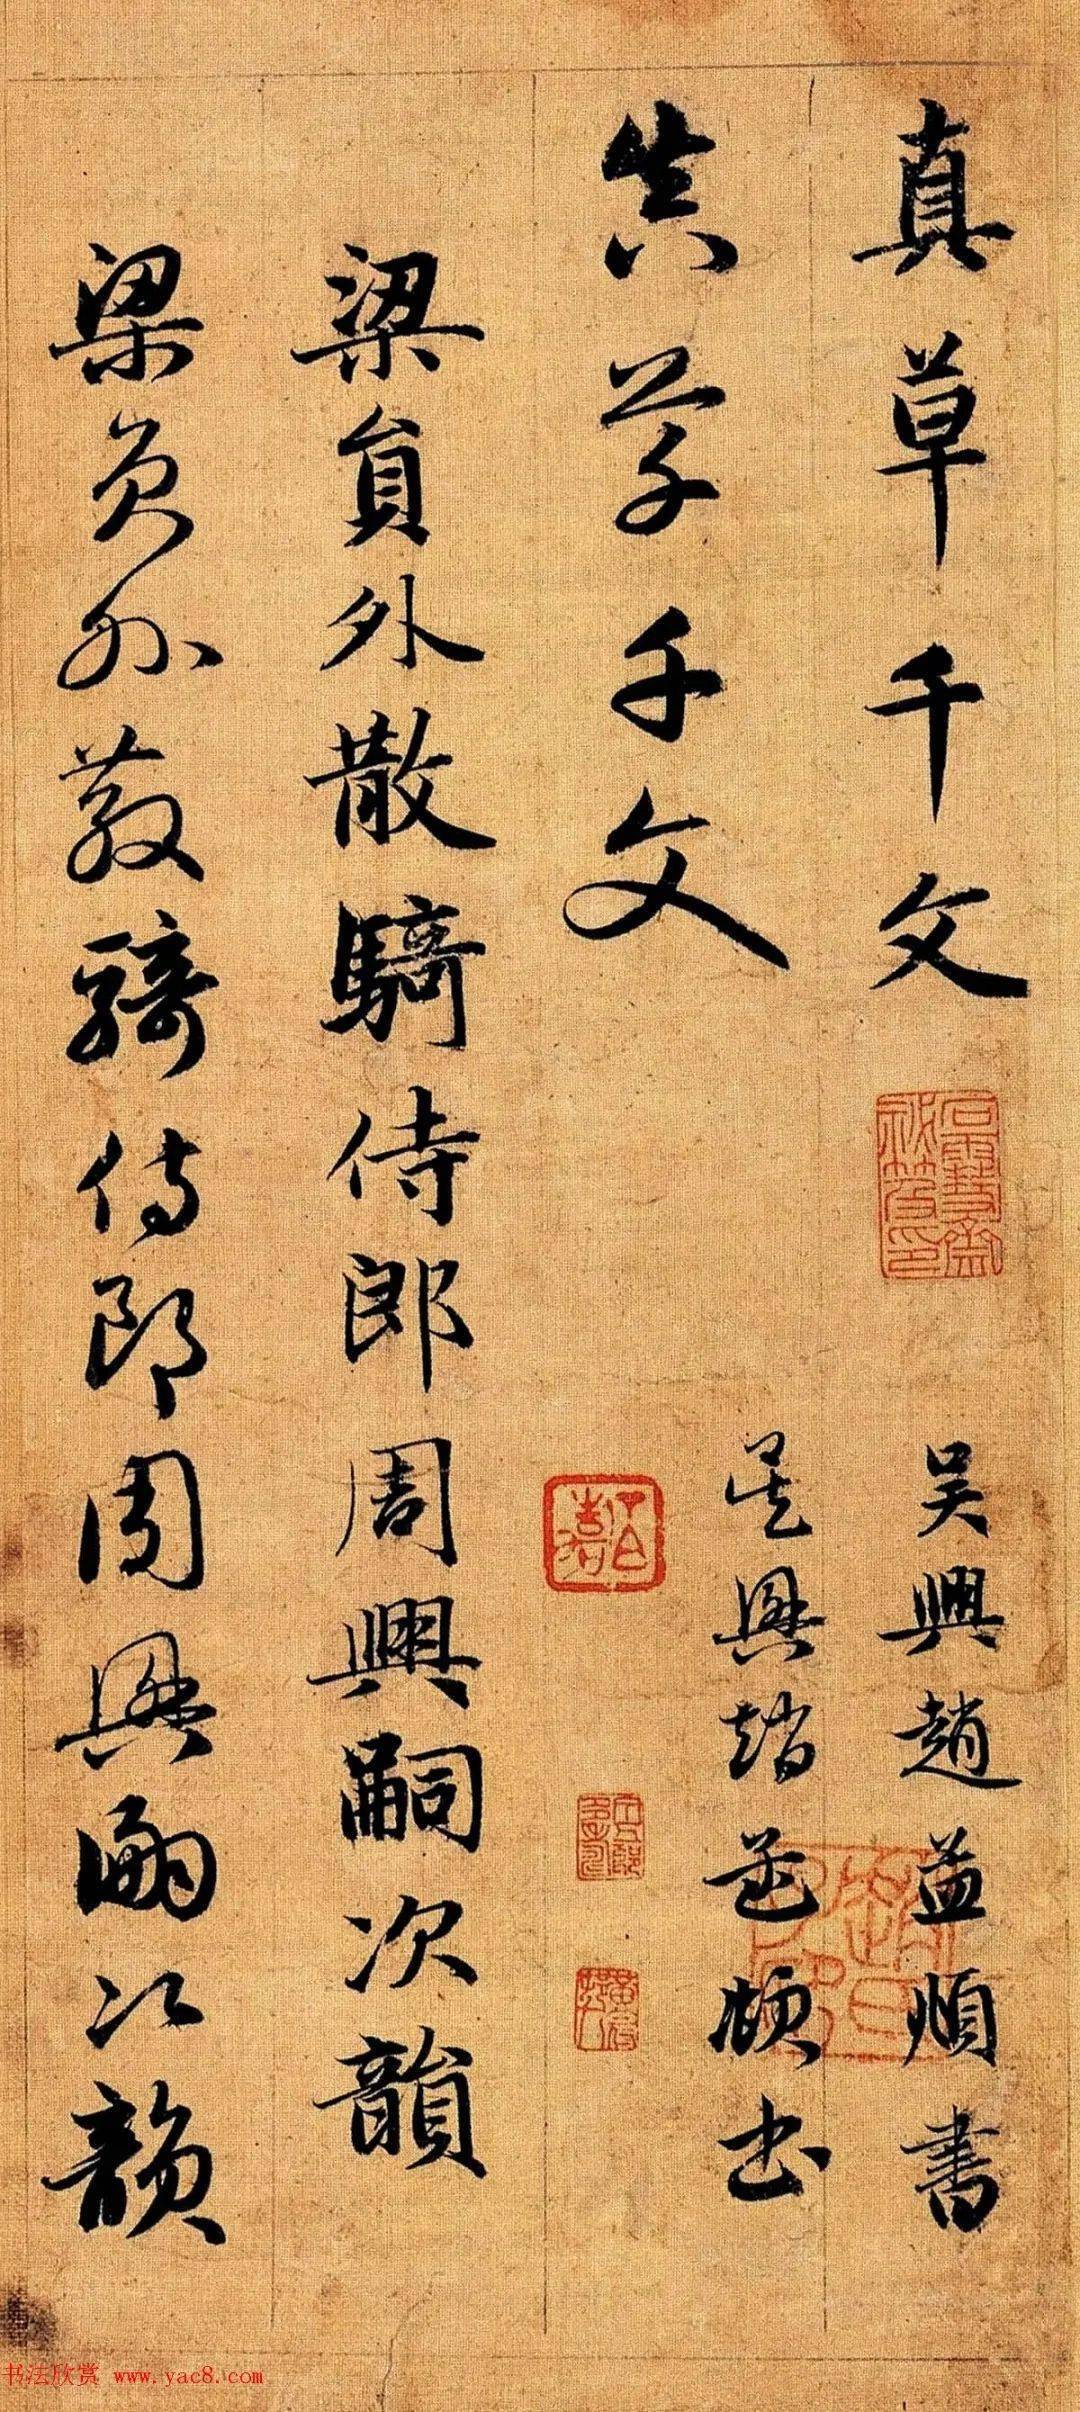 真草千文
吴興趙孟頫書
真草千文
吴興趙孟頫書
梁員外散騎侍郎周興嗣次韻
梁員外散騎侍郎周興嗣次韻
书法欣赏 www.yac8.com